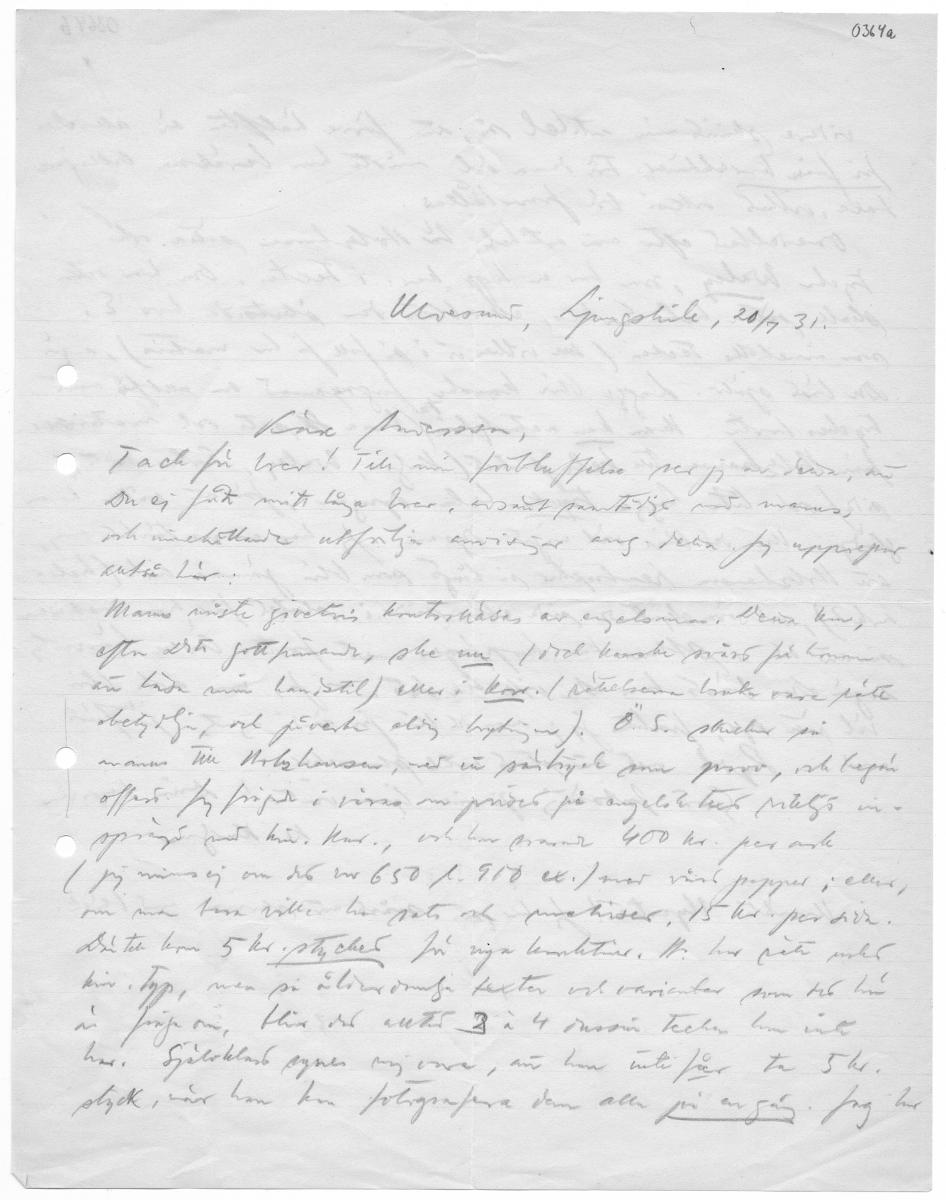 0364a
Ulvesund, Ljungskile, 20/7 31.
Käre Andersson,
Tack för brev! Till min förbluffelse ser jag av detta, att
Du ej fått mitt långa brev, avsänt samtidigt med manus,
och innehållande utförliga anvisningar ang. detta. Jag upprepar
alltså här:
Manus måste givetvis kontrolläsas av engelsman. Detta kan,
efter Ditt gottfinnande, ske nu (dock kanske svårt för honom
att läsa min handstil) eller i korr. (rättelserna bruka vara rätt
obetydliga, och påverka aldrig brytningen). Ö. S. skickar så
manus till Holzhausen, med ett särtryck som prov, och begär
offert. Jag frågade i våras om priset på engelsk text
med kin. kar., och han svarade 400 kr. per ark
(jag minns ej om det var 650 l. 950 ex.) med vårt papper; eller,
om man bara vill ha sats och matriser, 15 kr. per sida.
Därtill kom 5 kr. stycket för nya karaktärer. H. har rätt
kin. typ, men så ålderdomliga texter och varianter som det här
är fråga om, blir det alltid 3 à 4 dussin tecken han inte
har. Självklart synes mig vara, att han inte får ta 5 kr.
styck, när han kan fotografera dem alla på en gång. Jag har